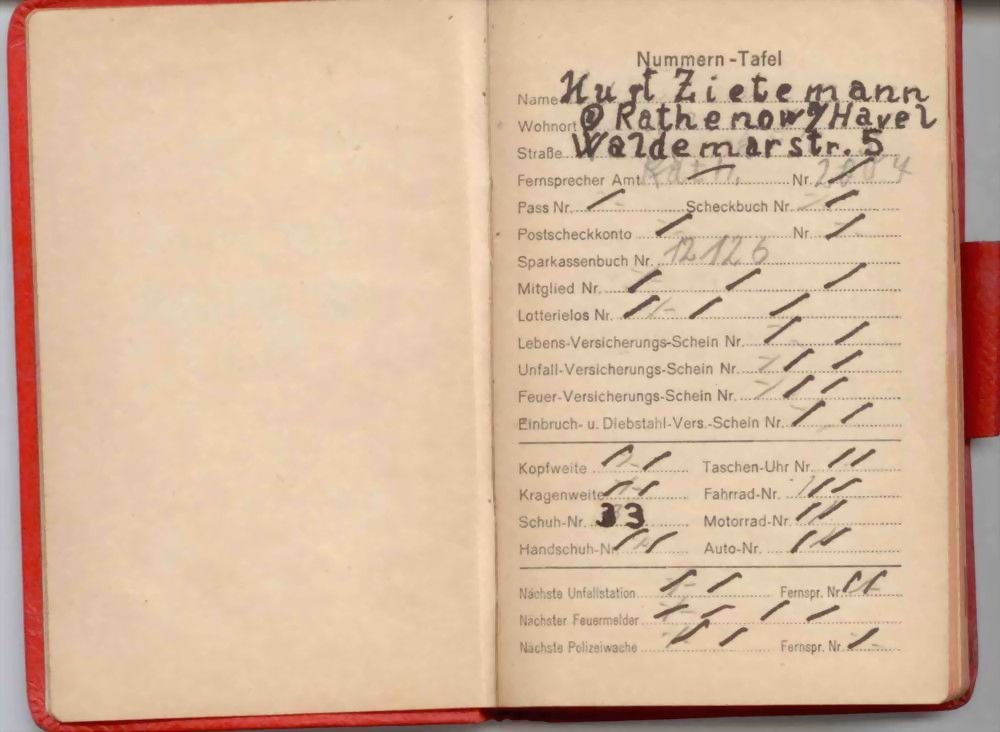 Nummern-Tafel
Name Kurt Zietemann
Wohnort Rathenow/Havel
Straße Waldemarstr. 5
Fernsprecher Amt Rath. Nr.
Pass Nr. Scheckbuch Nr.
Postscheckkonto Nr.
Sparkassenbuch Nr. 12126
Mitglied Nr.
Lotterielos Nr.
Lebens-Versicherungs-Schein Nr.
Unfall-Versicherungs-Schein Nr.
Feuer-Versicherungs-Schein Nr.
Einbruch- u. Diebstahl-Vers.-Schein Nr.
Kopfweite Taschen-Uhr Nr.
Kragenweite Fahrrad-Nr.
Schuh-Nr. 33 Motorrad-Nr.
Handschuh-Nr. Auto-Nr.
Nächste Unfallstation Fernspr. Nr.
Nächster Feuermelder
Nächste Polizeiwache Fernspr. Nr.